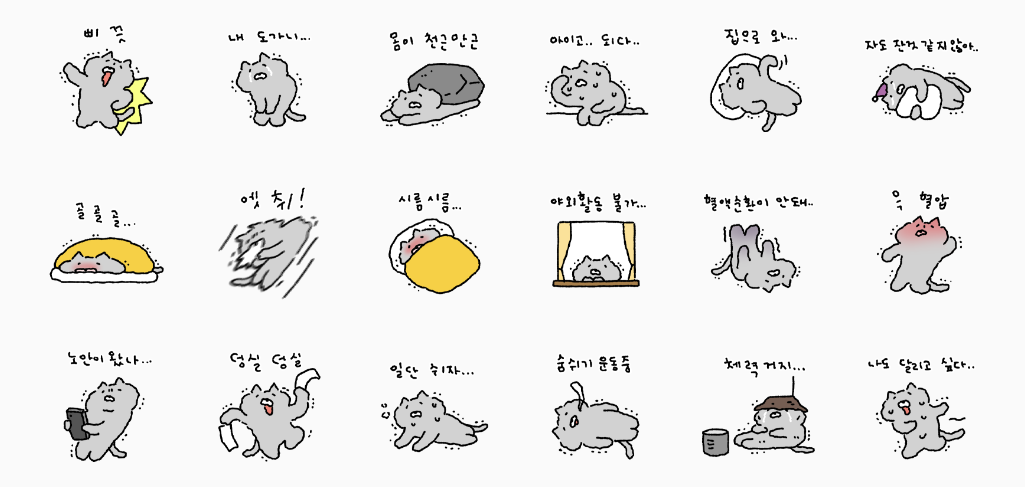 삐 끗
내 도가니...
몸이 천근만근
아이고.. 되다..
집으로 와...
자도 잔것 같지않아..
골골골...
엣 취!
시름시름...
야외활동 불가..
혈액순환이 안돼..
윽 혈압
노안이 왔나...
덩실 덩실
일단 쉬자...
숨쉬기 운동중
체력 거지...
나도 달리고 싶다..